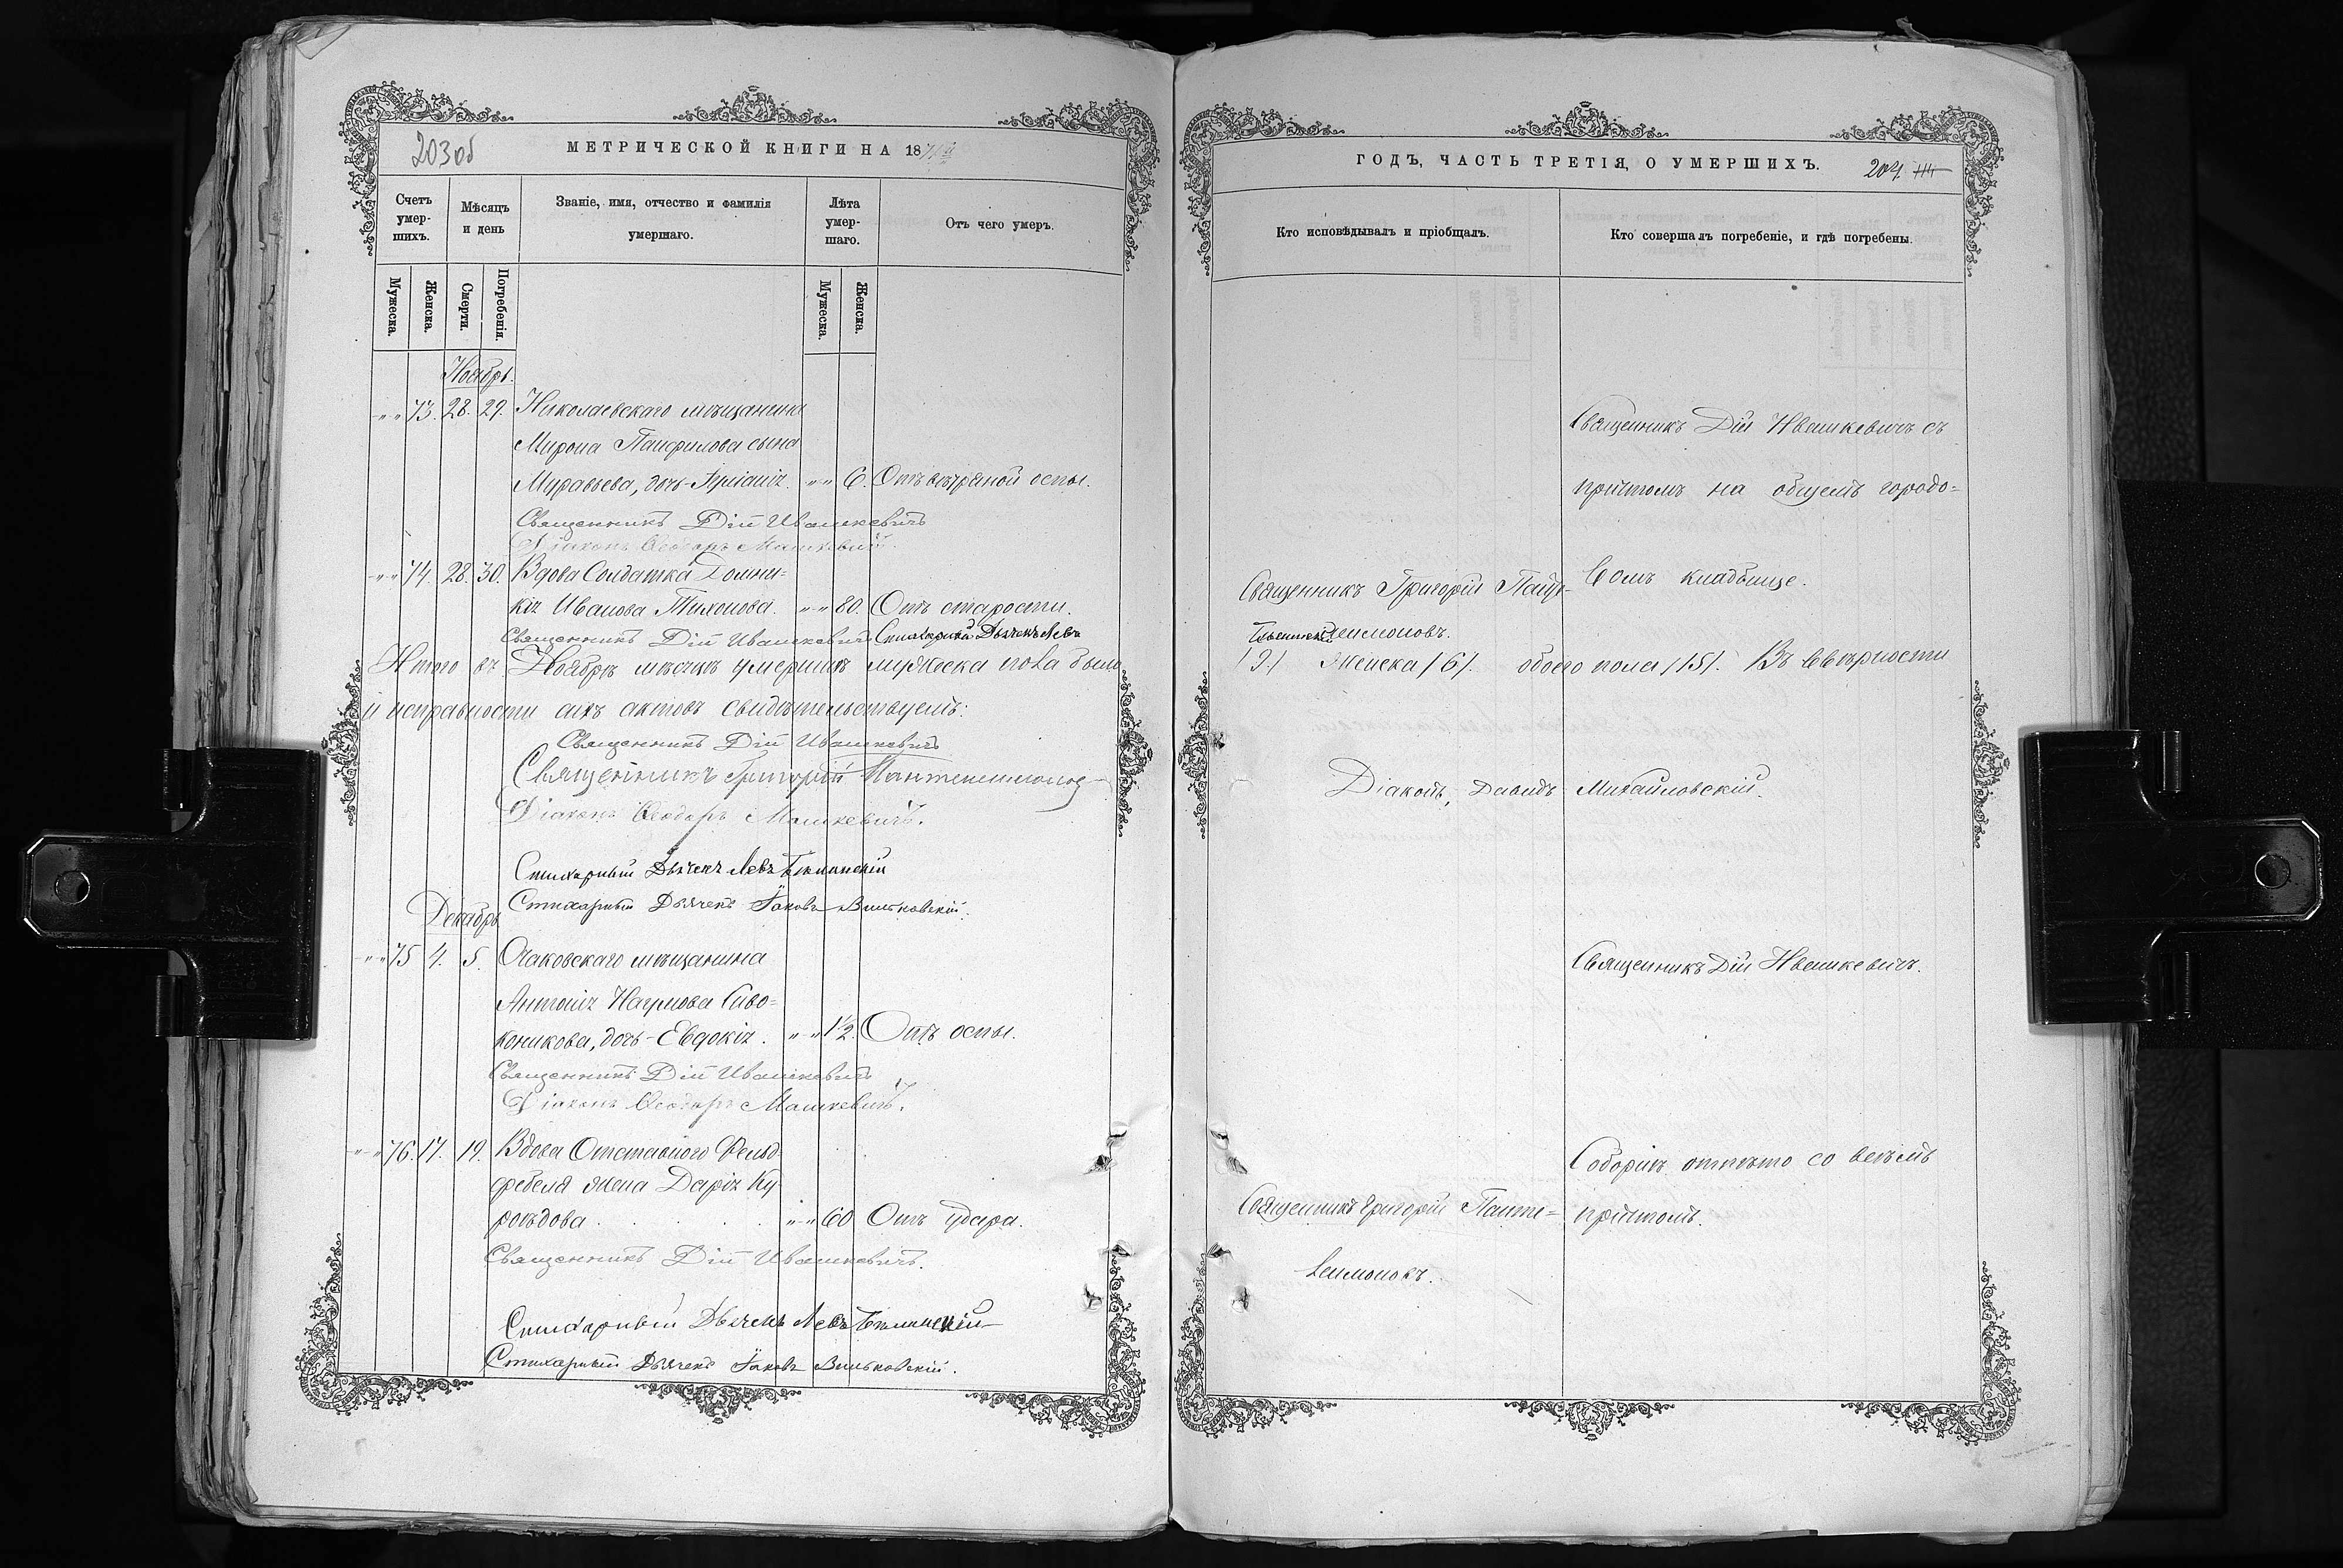 203об
МЕТРИЧЕСКОЙ КНИГИ НА 1871й
Счетъ умер- шихъ.
Мѣсяцъ и день
Званіе, имя, отчество и фамилія умершаго.
Лѣта умер- шаго.
Отъ чего умеръ.
Мужеска.
Женска.
Смерти.
Погребенія.
Мужеска.
Женска.
Ноябрь.
" " 73. 28. 29. Николаевскаго мѣщанина
Мирона Панфилова сына
Муравьева, дочь- " " 6. Отъ вѣтряной оспы.
Священникъ Дій Ивашкевичъ
Діаконъ Ѳеодоръ Машкевичъ.
" " 74. 28. 30. Вдова Солдатка Домни-
кія Иванова Тихонова. " " 80. Отъ старости.
Священникъ Дій Ивашкевичъ Стихарный Дьячекъ Левъ
Итого въ Ноябрѣ мѣсяцѣ умершихъ мужеска пола было
и исправности сихъ актовъ свидѣтельствуемъ:
Священникъ Дій Ивашкевичъ
Священникъ Григорій Пантелеимоновъ
Діаконъ Ѳеодоръ Машкевичъ.
Стихарный Дьячекъ Левъ Бѣлинскій
Стихарный Дьячекъ Іаковъ Вильковскій.
Декабрь
" " 75 4. 5. Очаковскаго мѣщанина
Антонія Наумова Сиво-
коникова, дочь - Евдокія. " " 1½. Отъ оспы.
Священникъ Дій Ивашкевичъ
Діаконъ Ѳеодоръ Машкевичъ.
" " 76. 17. 19. Вдова Отставного Фельд-
фебеля жена Дарія Ку-
роѣдова . . . . . " " 60 Отъ удара.
Священникъ Дій Ивашкевичъ.
Стихарный Дьячекъ Левъ Бѣлинскій
Стихарный Дьячекъ Іаковъ Вильковскій.
ГОДЪ, ЧАСТЬ ТРЕТІЯ, О УМЕРШИХЪ.
204.
Кто исповѣдывалъ и пріобщалъ.
Кто совершалъ погребеніе, и гдѣ погребены.
Священникъ Дій Ивашкевичъ съ
причтомъ на общемъ городо=
вомъ кладбище.
Священникъ Григорій Панте-
Бѣлинскій леимоновъ.
/9/ Женска /6/. обоего пола /15/. Въ ввѣрности
Діаконъ, Давидъ Михайловскій.
Священникъ Дій Ивашкевичъ.
Соборнѣ отпѣто со всѣмъ
причтомъ.
Священникъ Григорій Панте=
леимоновъ.